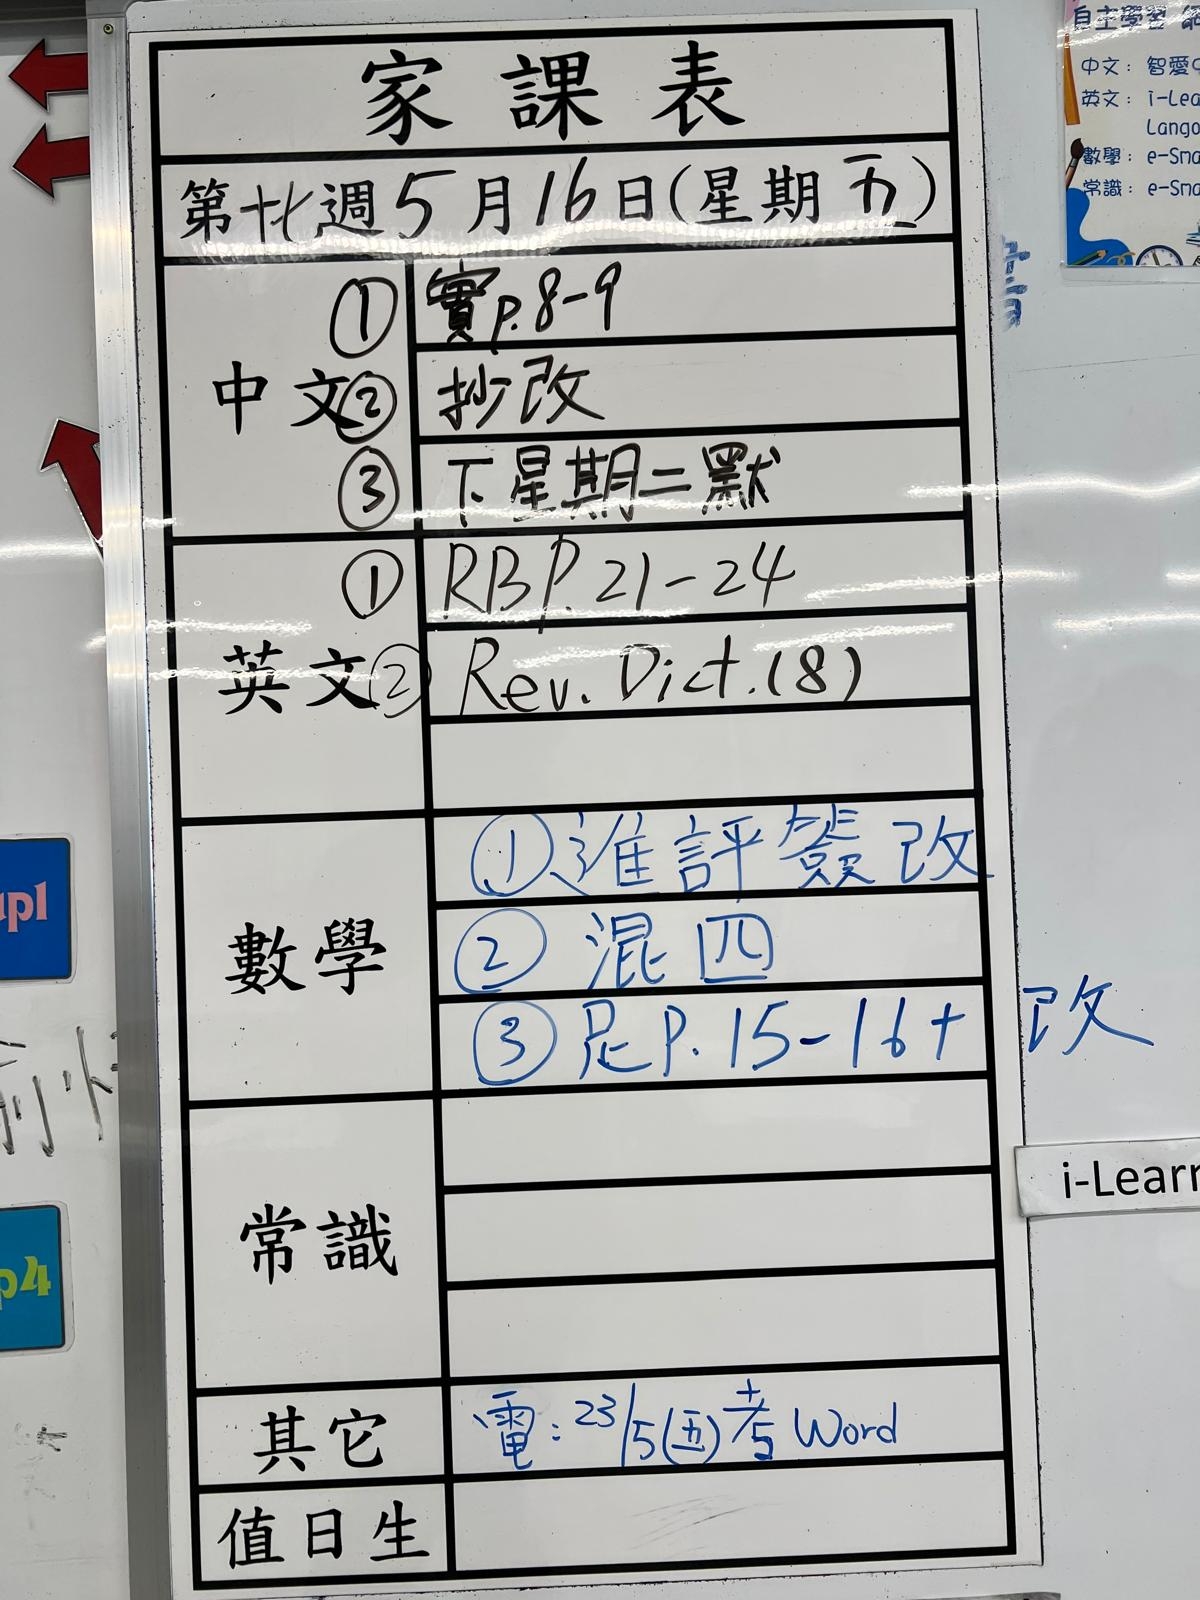 家課表
第廿七週5月16日(星期五)
中文
① 實p.8-9
② 抄改
③ 下星期二默
英文
① RB P.21-24
② Rev. Dict.(8)
數學
① 進評簽改
② 混四
③ 尼P.15-16+改
常識
其它
電:23/5(五)考Word
值日生
自主學習
中文:智愛
英文:i-Lea
Lango
數學:e-Sma
常識:e-Sma
i-Learn
up1
p4